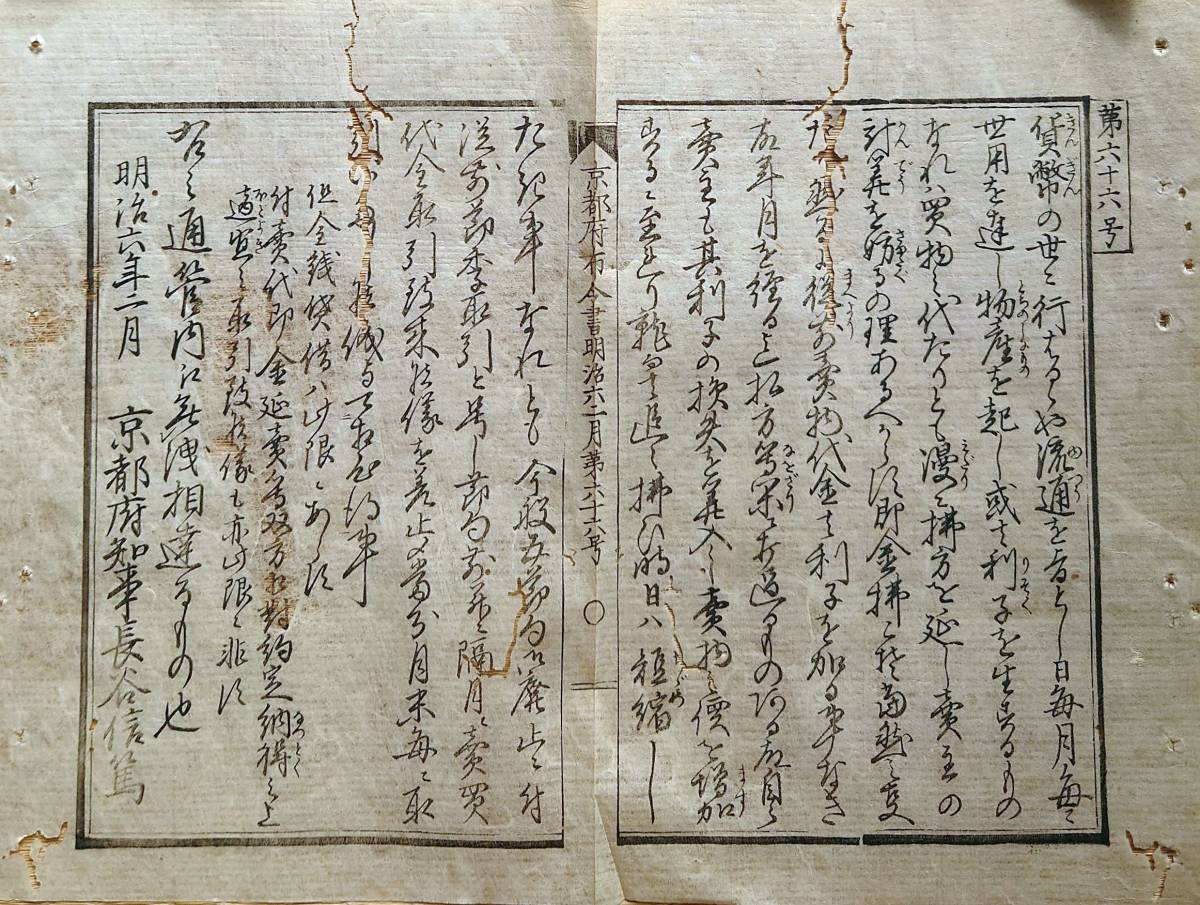 第六十六号
貨幣の世ニ行はるゝや流通を旨とし日毎月毎ニ
世用を達し物産を起し或は利子を生するもの
なれハ買物之代たりとも漫ニ拂方を延し賣主の
計算を妨るの理あるへからす即金拂こそ當然之事
たり然るに従前賣物代金は利子を加る事なき
故年月を経る迄払方等閑に打過るもの
賣主も其利子の損失を算入し賣物之價を増加
するニ至れり就而は追々拂ひ時日ハ短縮し
たき事なれとも今般五節句御廃止ニ付
従前節季取引と号し節句前并ニ隔月ニ賣買
代金取引致来候儀を差止め當分月末毎ニ取
引
但金銭貸借ハ此限ニあらす
付賣代即金延賣等双方相對約定納得之上
適宜之取引致候儀も亦此限ニ非す
右之通管内江無洩相達るもの也
明治六年二月
京都府知事長谷信篤
京都府布令書明治六二月第六十六号